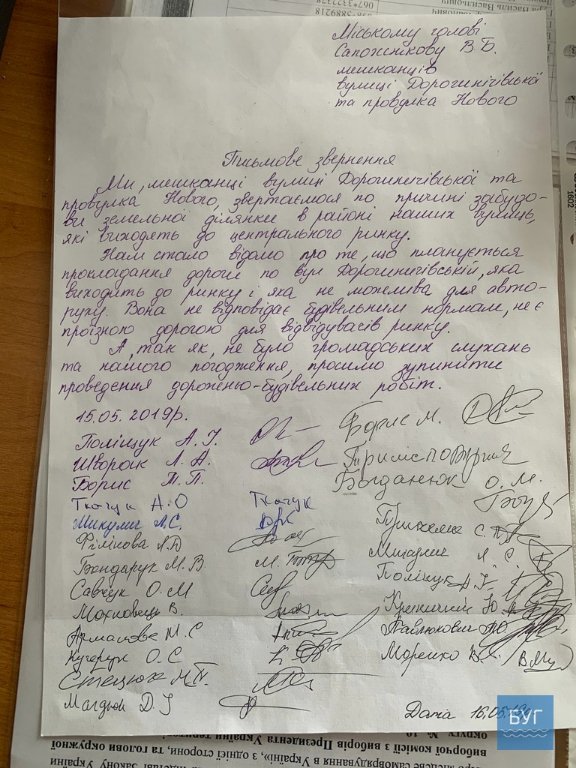 Міському голові
Сапожнікову В.Б.
мешканців
вулиці Дорогинічівської
та провулка Нового
Письмове звернення
Ми, мешканці вулиці Дорогинічівської та
провулка Нового, звертаємося по причині забудо-
ви земельної ділянки в районі наших вулиць,
які виходять до центрального ринку.
Нам стало відомо про те, що планується
прокладання дороги по вул Дорогинічівській, яка
виходить до ринку і яка не можлива для авто-
руху. Вона не відповідає будівельним нормам, не є
проїзною дорогою для відвідувачів ринку.
А, так як, не було громадських слухань
та нашого погодження, просимо зупинити
проведення дорожньо-будівельних робіт.
15.05.2019р.
Поліщук А. І.
Борис М.
Шворак Л. А.
Борис П. П.
Богданюк О. М.
Ткачук А. О Ткачук
Микулич Л.С.
Філікова Л.В
Бондарук М. В
Савчук О. М
Поліщук А. І
Маховець В.
Кучерук О. С
Стецюк М. П.
Дата 16.05.19
БУГ
виборчої комісії з виборів Президента України